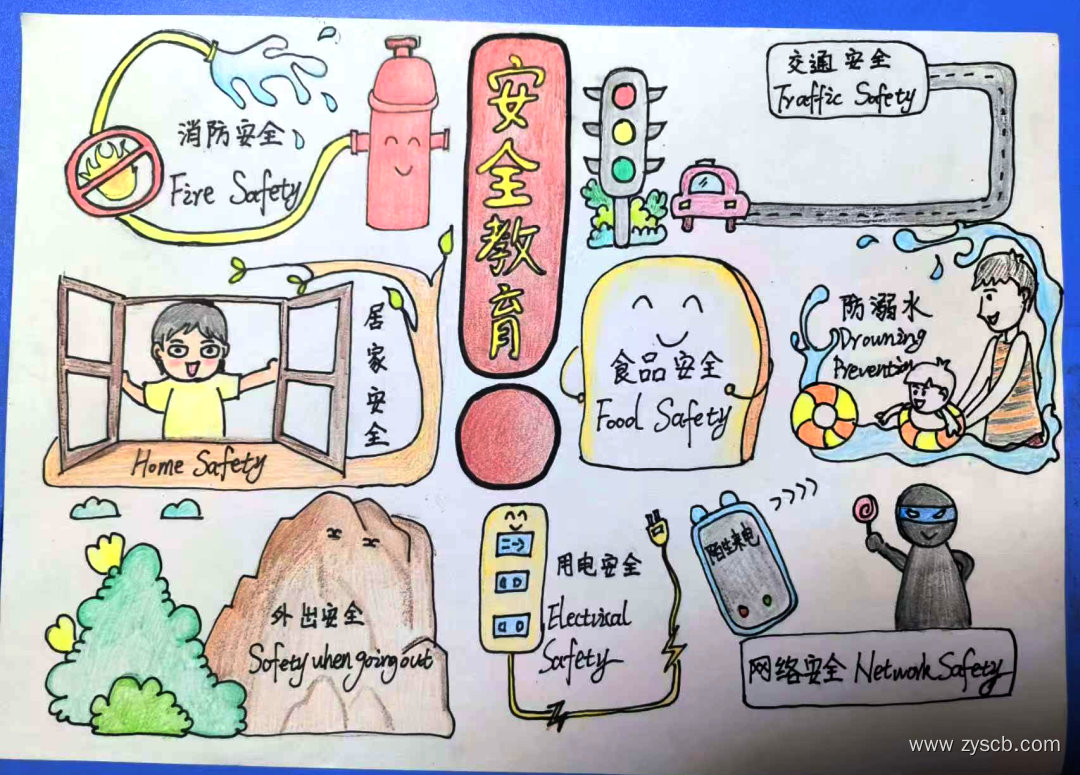 安全教育
消防安全
Fire Safety
交通安全
Traffic Safety
居家安全
Home Safety
食品安全
Food Safety
防溺水
Drowning
Prevention
外出安全
Safety when going out
用电安全
Electrical
Safety
陌生来电
网络安全 Network Safety
www.zyscb.com